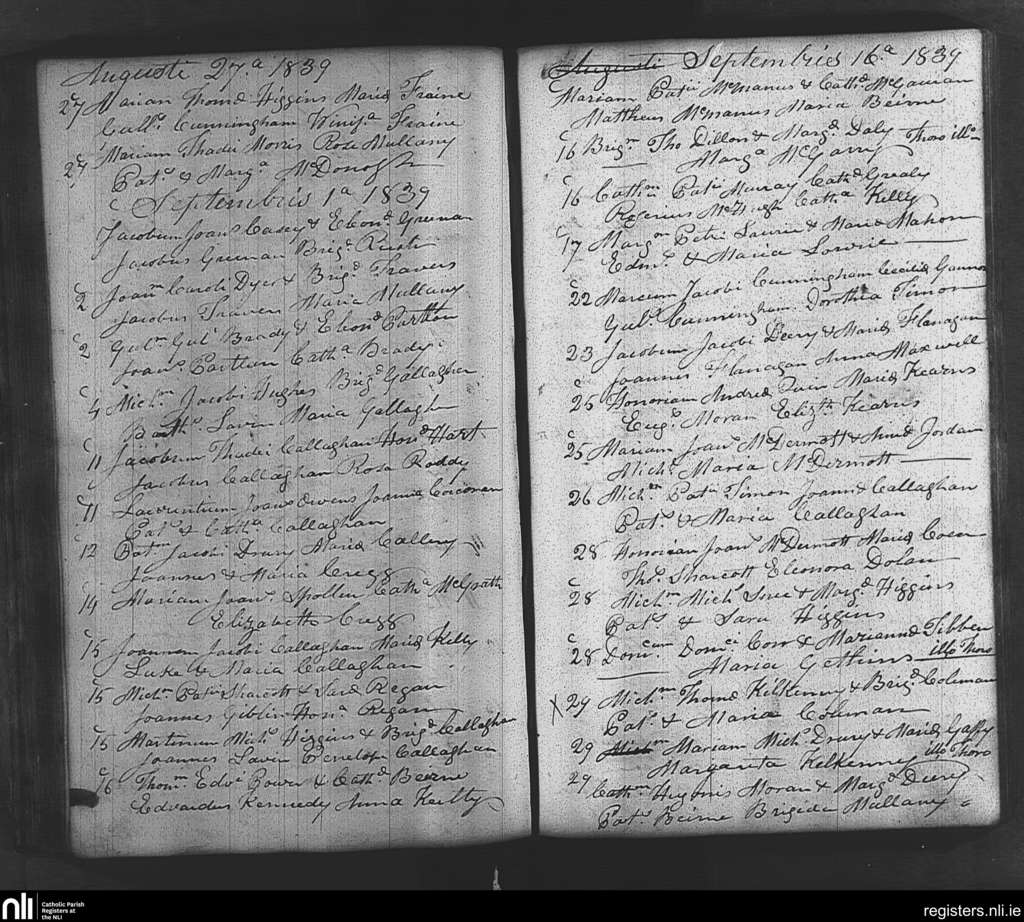 Augusti 27.a 1839
27 Marian Thomæ Higgins Mariæ Fraine
Gull.s Cunningham Winif.a Fraine
27 Mariam Thadei Morris Rosæ Mullany
Pat.s & Marg.a McDonogh
Septembris 1a 1839
Jacobum Joan.s Casey & Eleon.æ Greenan
Jacobus Greenan Brig.a
2 Joan.m Caroli Dyer & Brig.æ Travers
Jacobus Travers Maria Mullany
2 Gul.m Gul.i Brady & Eleon.æ Partlan
Joan.s Partlan Cath.a Brady
4 Mich.m Jacobi Hughes Brig.æ Gallagher
Barth.s Lavin Maria Gallagher
11 Jacobum Thadei Callaghan Hon.æ Hart
Jacobus Callaghan Rosa Roddy
11 Laurentium Joan.s Owens Joannæ Corcoran
Pat.s & Cath.a Callaghan
12 Pat.m Jacobi Drury Mariæ Callery
Joannes & Maria Cregg
14 Mariam Joan.s Spollen Cath.æ McGrath
Elizabetha Cregg
15 Joannem Jacobi Callaghan Mariæ Kelly
Luke & Maria Callaghan
15 Mich.m Pat.ii Sharcott & Saræ Regan
Joannes Giblin Hon.a Regan
15 Martinum Mich.s Higgins & Brig.æ Callaghan
Joannes Lavin Penelope Callaghan
16 Thom.m Edv.i Power & Cath.æ Beirne
Edvardus Kennedy Anna Keilty
Augusti Septembris 16.a 1839
Mariam Patii McManus & Cath.æ McGauran
Mattheus McManus Maria Beirne
16 Brig.m Tho Dillon & Marg.æ Daly Thoro ill.o
Marg.a McGarry
16 Cath.m Pat.ii Murray Cath.æ Grealy
McHugh Cath.a Kelly
17 Marg.m Petri Laurie & Mariæ Mahon
Edm.s & Maria Lowrie
22 Marcum Jacobi Cunningham Ceciliæ Gannon
Gul.s Cunningham Dorothea Timon
23 Jacobum Jacobi Deery & Mariæ Flanagan
Joannes Flanagan Anna Maxwell
25 Honoriam Andreæ Quin Mariæ Kearns
Eug.s Moran Eliz.th Kearns
25 Mariam Joan.s McDermott & Annæ Jordan
Mich.l Maria McDermott
26 Mich.m Pat.ii Timon Joannæ Callaghan
Pat.s & Maria Callaghan
28 Honoriam Joan.s McDermott Mariæ Coen
Tho.s Sharcott Eleonora Dolan
28 Mich.m Mich.s & Marg.æ Higgins
Pat.s & Sara Higgins
28 Dom.cum Dom.ci Corr & Mariannæ Tibben
Maria Gethins ill.o Thoro
X 29 Mich.m Thomæ Kilkenny & Brig.æ Coleman
Pat.s & Maria Coleman
29 Mich.m Mariam Mich.s Drury & Mariæ Gaffny
Margarita Kilkenny ill.o Thoro
29 Cath.m Hugonis Moran & Marg.æ Deery
Pat.s Beirne Brigida Mullany
nli Catholic Parish
Registers at
the NLI
registers.nli.ie